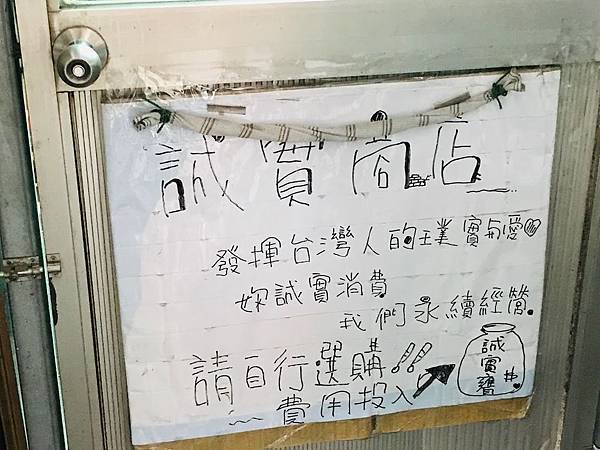 誠實商店
發揮台灣人的樸實與愛♡
妳誠實消費
我們永續經營.
請自行選購!!
費用投入
誠實
寶